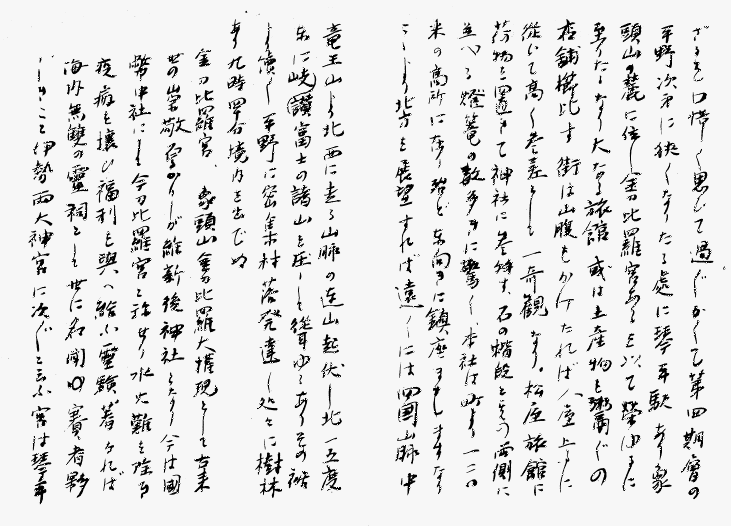 ざるを口惜しく思ひて過ぐかくて第四期會の
平野次第に狭くなりたる處に琴平駅あり象
頭山の麓に位し金刀比羅宮あるを以て榮ゆるに
至りたるなり大なる旅館或は土産物を粥ぐの
店舗櫛比す街は山腹をかけたれば人屋上下に
従いて高く参差として一奇観なり。松屋旅館に
荷物を置きて神社に参拝す、石の階段とその両側に
並べる燈篭の数多きに驚く、本社は町より一二〇
米の高所にあり殆ど東向きに鎮座ましますなり
ここより北方を展望すれば遠くには四國山脈中
竜王山より北西に走る山脈の連山起伏し北一五度
東に峨讃富士の諸山を圧して聳ゆるありその裾
より續く平野に密集村落発達し処々に樹林
あり九時四十分境内を出でぬ
金刀比羅宮、象頭山金刀比羅大権現として古来
世の崇敬篤かりしが維新後神社となり今は國
幣中社にして今刀比羅宮と称せり水火難を除き
疫病を攘ひ福利を與へ給ふ霊験著ければ
海内無雙の靈祠として世に名聞ゆ賽者夥
しきこと伊勢両大神宮に次ぐと云ふ宮は琴平